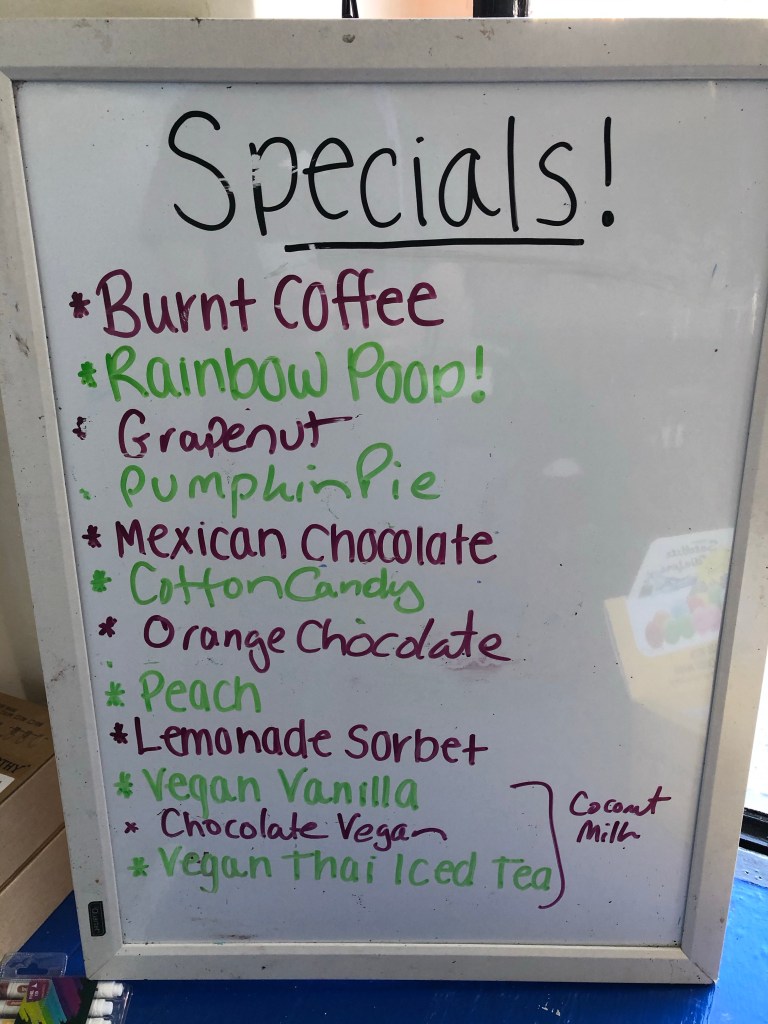 Specials!
* Burnt Coffee
* Rainbow Poop!
* Grapenut
· Pumpkin Pie
* Mexican Chocolate
* Cotton Candy
* Orange Chocolate
* Peach
* Lemonade Sorbet
* Vegan Vanilla
* Chocolate Vegan
* Vegan Thai Iced Tea
Coconut
Milk